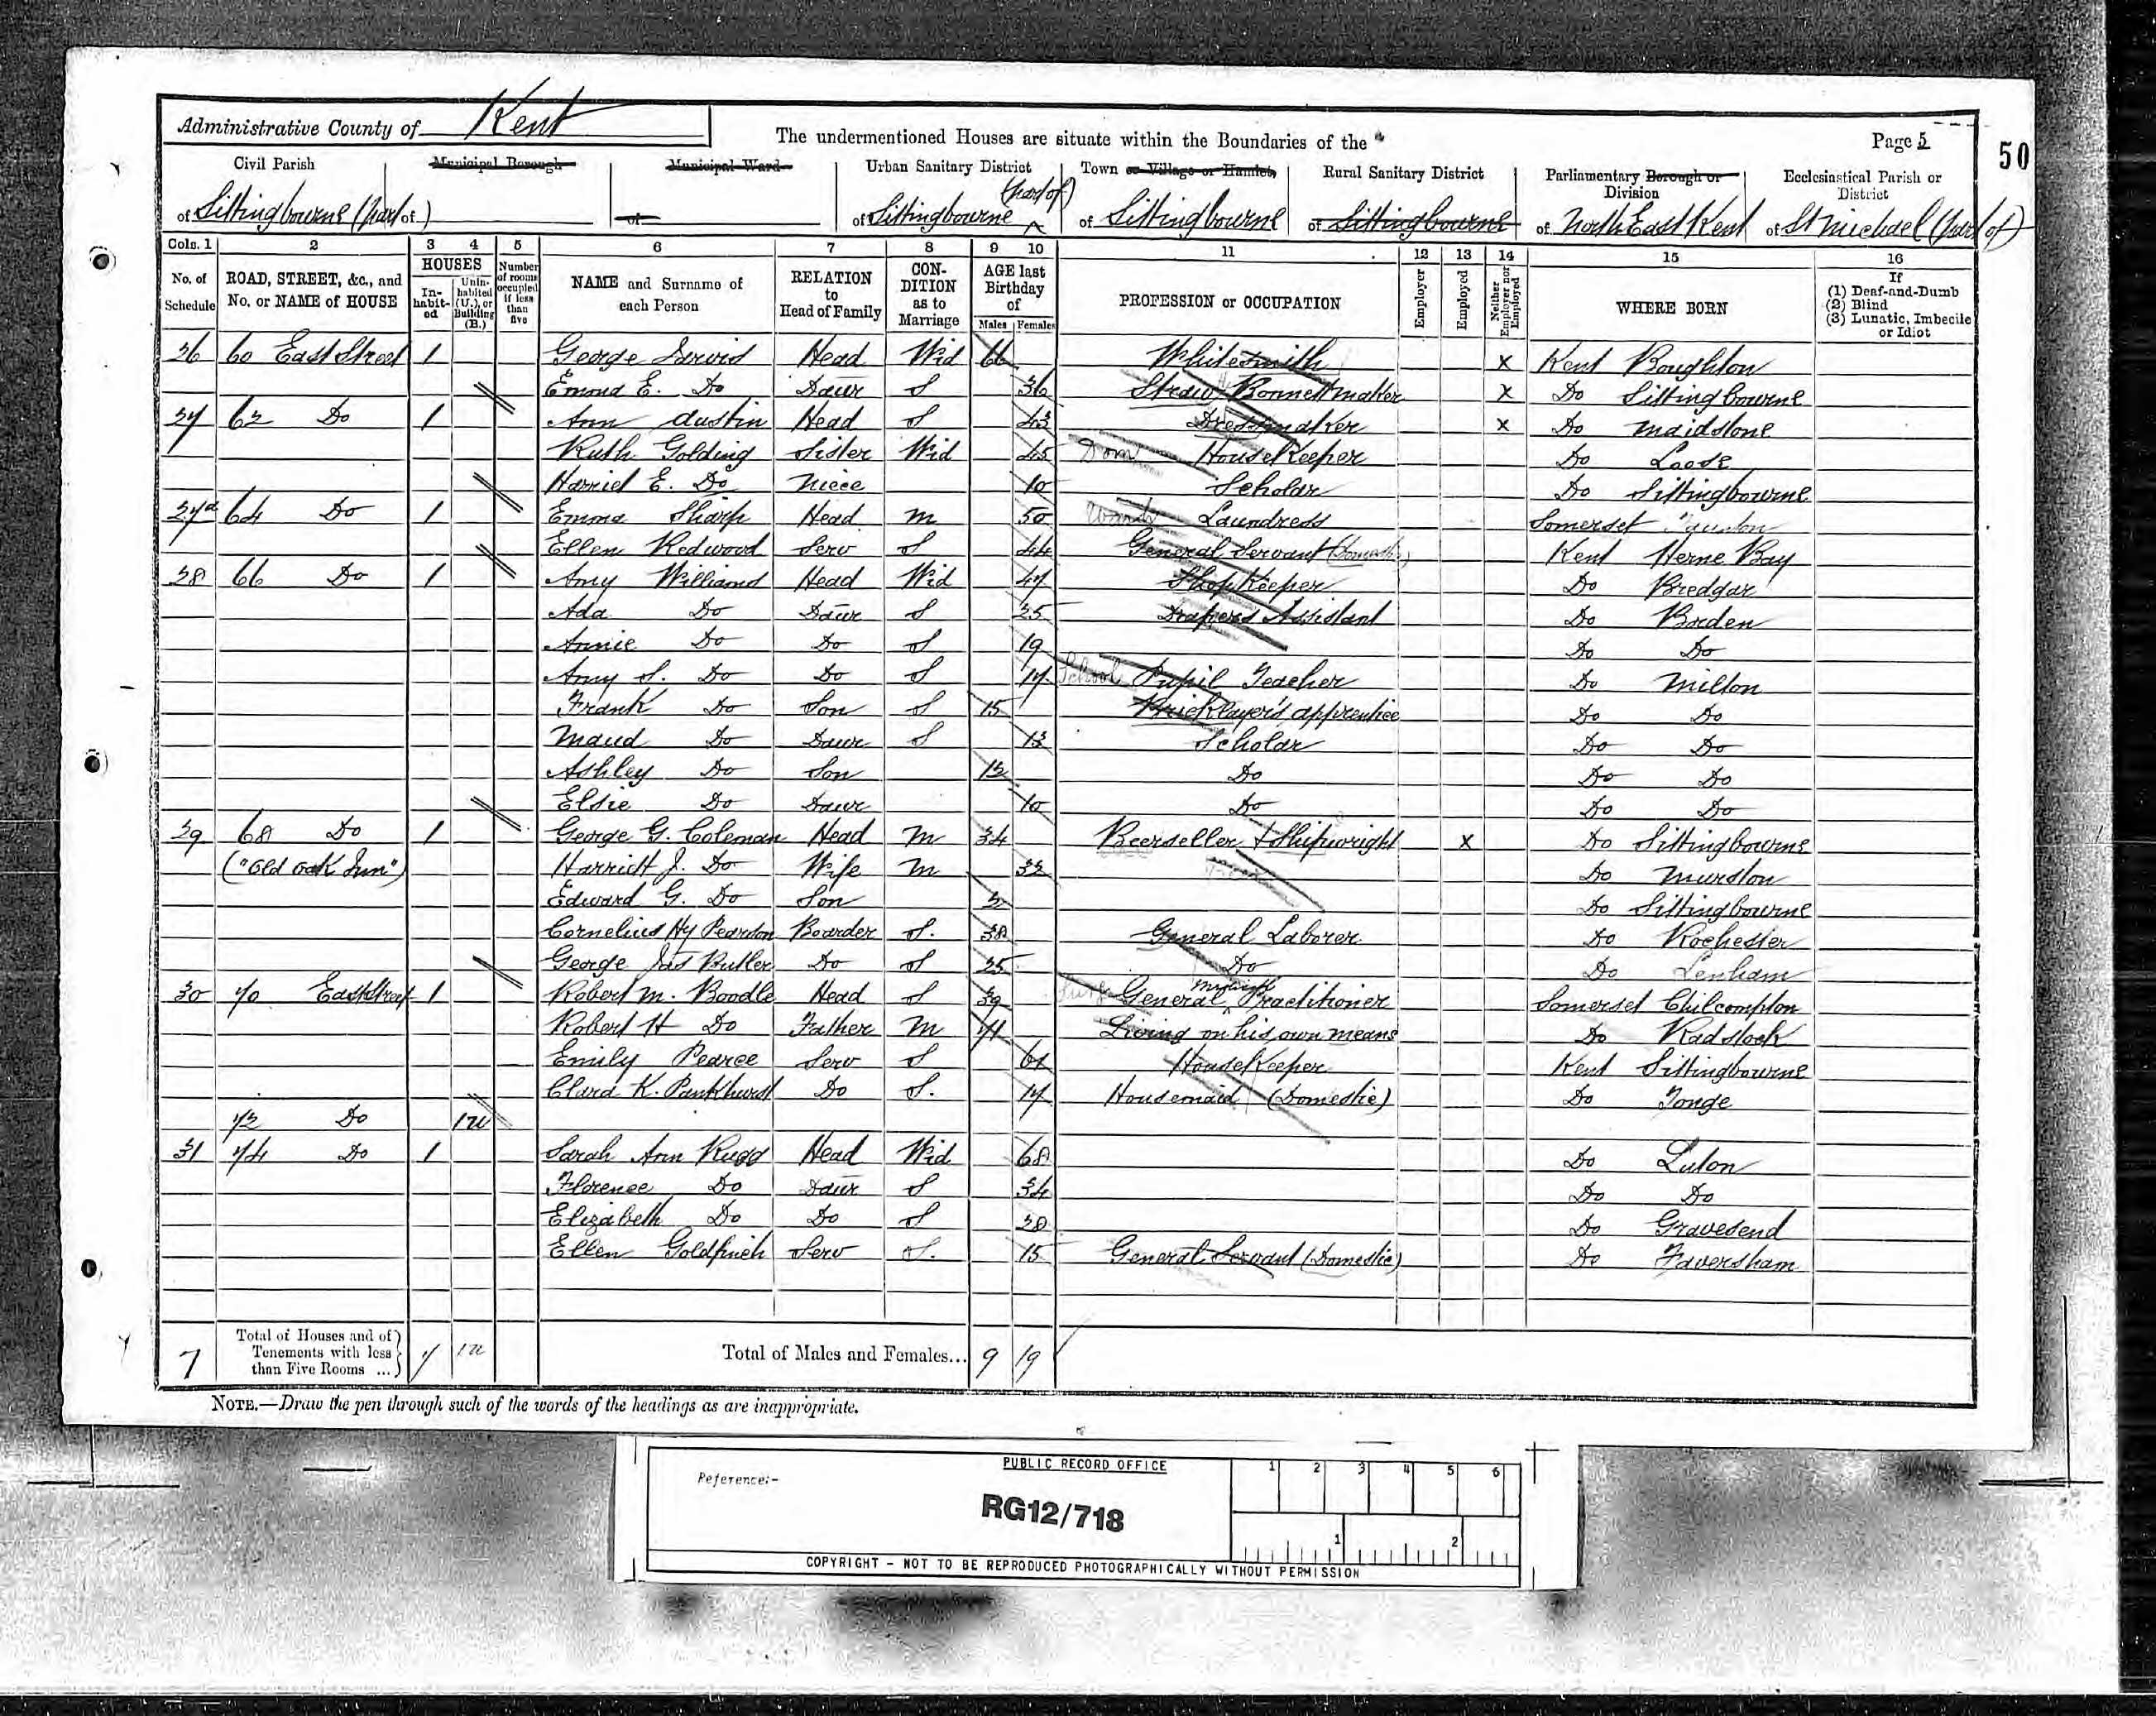 Administrative County of Kent
The undermentioned Houses are situate within the Boundaries of the
Page 5
50
Civil Parish Municipal Borough Municipal Ward Urban Sanitary District Town or Village or Hamlet, Rural Sanitary District Parliamentary Borough or Division Ecclesiastical Parish or District
of Sittingbourne (part of) of of Sittingbourne (part of) of Sittingbourne of Sittingbourne of North East Kent of St Michael (part of)
Cols. 1 2 3 4 5 6 7 8 9 10 11 12 13 14 15 16
No. of Schedule ROAD, STREET, &c., and No. or NAME of HOUSE HOUSES In-habit-ed Unin-habited (U.), or Building (B.) Number of rooms occupied if less than five NAME and Surname of each Person RELATION to Head of Family CON-DITION as to Marriage AGE last Birthday of Males Females PROFESSION or OCCUPATION Employer Employed Neither Employer nor Employed WHERE BORN If (1) Deaf-and-Dumb (2) Blind (3) Lunatic, Imbecile or Idiot
26 60 East Street 1 George Head Wid 66 Whitesmith x Kent Boughton
Emma E. Do Daur S 36 Straw Bonnet maker x Do Sittingbourne
27 62 Do 1 Ann Austin Head S 43 Dressmaker x Do Maidstone
Ruth Golding Sister Wid 45 Dom HouseKeeper Do Loose
Harriet E. Do Niece 10 Scholar Do Sittingbourne
27a 64 Do 1 Emma Sharp Head M 50 Laundress Somerset Taunton
Ellen Redwood Serv S 44 General Servant (Domestic) Kent Herne Bay
28 66 Do 1 Amy Williams Head Wid 47 ShopKeeper Do Bredgar
Ada Do Daur S 25 Drapers Assistant Do Borden
Annie Do Do S 19 Do Do
Amy S. Do Do S 17 School Pupil Teacher Do Milton
Frank Do Son S 15 Bricklayer's apprentice Do Do
Maud Do Daur S 13 Scholar Do Do
Ashley Do Son 12 Do Do Do
Elsie Do Daur 10 Do Do Do
29 68 Do 1 George G. Coleman Head M 34 Beerseller & Shipwright x Do Sittingbourne
("Old Oak Inn") Harriett J. Do Wife M 32 Do Murston
Edward G. Do Son Do Sittingbourne
Cornelius Hy Peardon Boarder S. 38 General Laborer Do Rochester
George Jas Butler Do S 25 Do Do Lenham
30 70 East Street 1 Robert M. Boodle Head S 39 General Medical Practitioner Somerset Chilcompton
Robert H Do Father M 71 Living on his own means Do Radstock
Emily Pearce Serv S 61 HouseKeeper Kent Sittingbourne
Clara K. Pankhurst Do S. 17 Housemaid (Domestic) Do Tonge
72 Do 1U
31 74 Do 1 Sarah Ann Rugg Head Wid 68 Do Luton
Florence Do Daur S 34 Do Do
Elizabeth Do Do S 28 Do Gravesend
Ellen Goldfinch Serv S. 15 General Servant (Domestic) Do Faversham
7 Total of Houses and of Tenements with less than Five Rooms ... 7 1U Total of Males and Females... 9 19
NOTE.—Draw the pen through such of the words of the headings as are inappropriate.
PUBLIC RECORD OFFICE
Reference:-
RG12/718
1 2 3 4 5 6
1 2
COPYRIGHT - NOT TO BE REPRODUCED PHOTOGRAPHICALLY WITHOUT PERMISSION